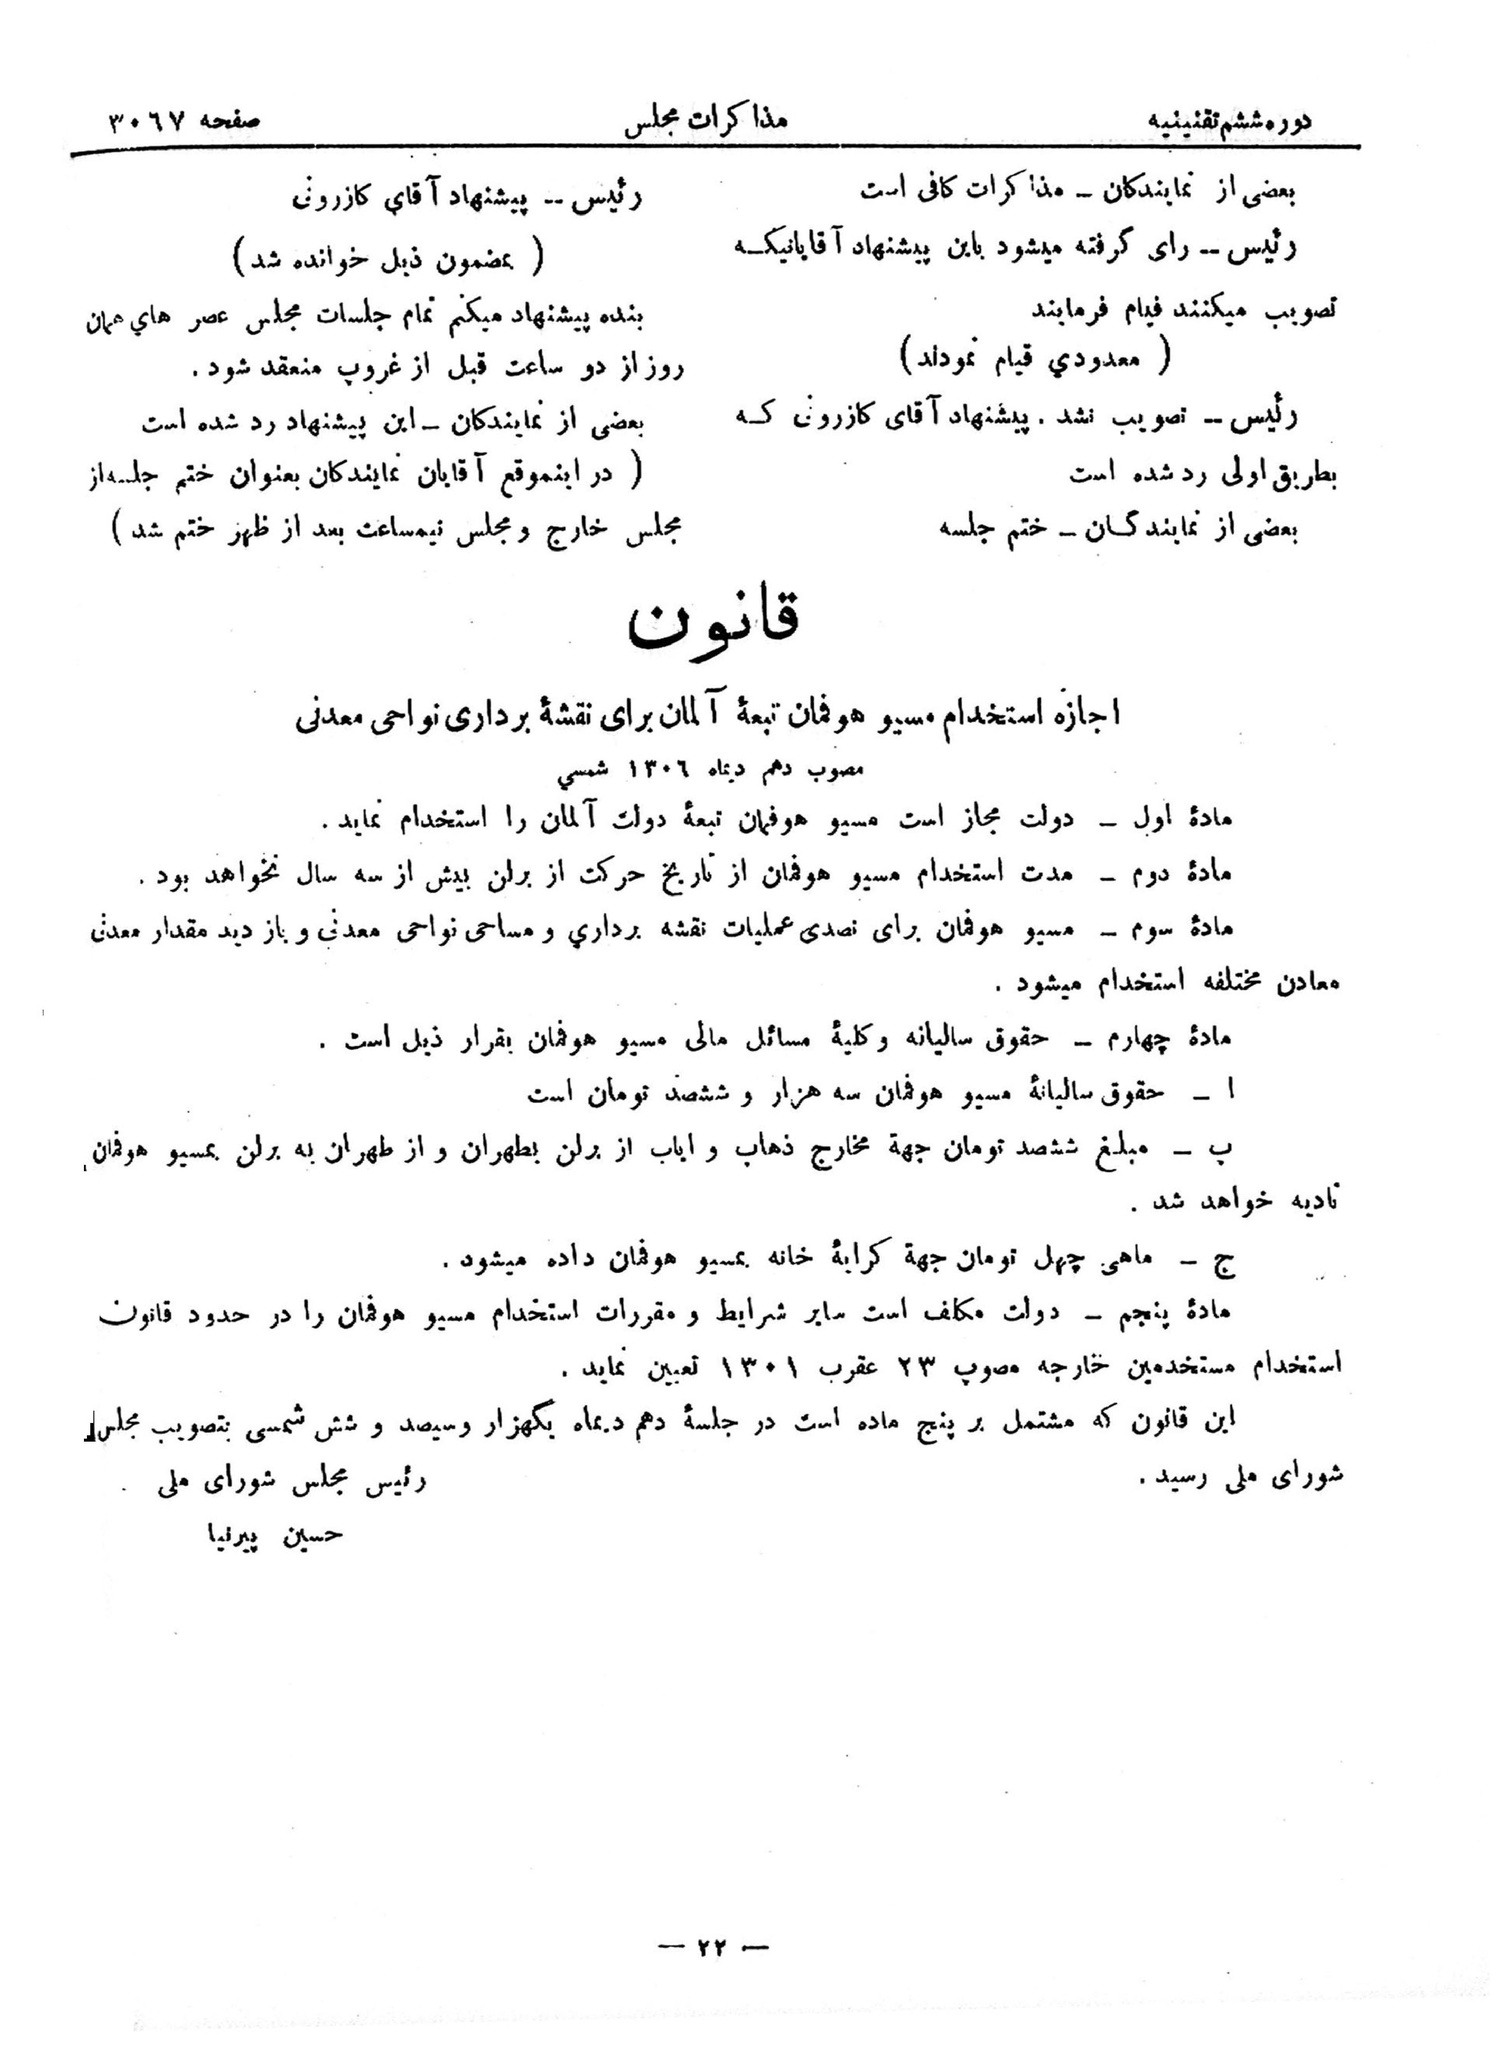 دوره ششم تقنینیه
مذاکرات مجلس
صفحه ۳۰۶۷
بعضی از نمایندکان ــ مذاکرات کافی است
رئیس ــ رای گرفته میشود باین پیشنهاد آقایانیکه
تصویب میکنند قیام فرمایند
( معدودي قیام نمودند)
رئیس ــ تصویب نشد . پیشنهاد آقای کازرونی که
بطریق اولی رد شده است
بعضی از نمایندگان ــ ختم جلسه
رئیس ــ پیشنهاد آقاي کازرونی
( بمضمون ذیل خوانده شد)
بنده پیشنهاد میکنم تمام جلسات مجلس عصر هاي همان
روز از دو ساعت قبل از غروب منعقد شود .
بعضی از نمایندکان ــ این پیشنهاد رد شده است
( در اینموقع آقایان نمایندکان بعنوان ختم جلسه از
مجلس خارج و مجلس نیمساعت بعد از ظهر ختم شد )
قانون
اجازه استخدام مسیو هوفمان تبعهٔ آلمان برای نقشهٔ برداری نواحی معدنی
مصوب دهم دیماه ۱۳۰۶ شمسي
مادهٔ اول ــ دولت مجاز است مسیو هوفمان تبعهٔ دولت آلمان را استخدام نماید .
مادهٔ دوم ــ مدت استخدام مسیو هوفمان از تاریخ حرکت از برلن بیش از سه سال نخواهد بود .
مادهٔ سوم ــ مسیو هوفمان برای تصدی عملیات نقشه برداري و مساحی نواحی معدنی و باز دید مقدار معدنی
معادن مختلفه استخدام میشود .
مادهٔ چهارم ــ حقوق سالیانه و کلیهٔ مسائل مالی مسیو هوفمان بقرار ذیل است .
ا ــ حقوق سالیانهٔ مسیو هوفمان سه هزار و ششصد تومان است
پ ــ مبلغ ششصد تومان جهة مخارج ذهاب و ایاب از برلن بطهران و از طهران به برلن بمسیو هوفمان
تادیه خواهد شد .
ج ــ ماهی چهل تومان جهة کرایهٔ خانه بمسیو هوفمان داده میشود .
مادهٔ پنجم ــ دولت مکلف است سایر شرایط و مقررات استخدام مسیو هوفمان را در حدود قانون
استخدام مستخدمین خارجه مصوب ۲۳ عقرب ۱۳۰۱ تعیین نماید .
این قانون که مشتمل بر پنج ماده است در جلسهٔ دهم دیماه یکهزار وسیصد و شش شمسی بتصویب مجلس
شورای ملی رسید .
رئیس مجلس شورای ملی
حسین پیرنیا
ــ ۲۲ ــ